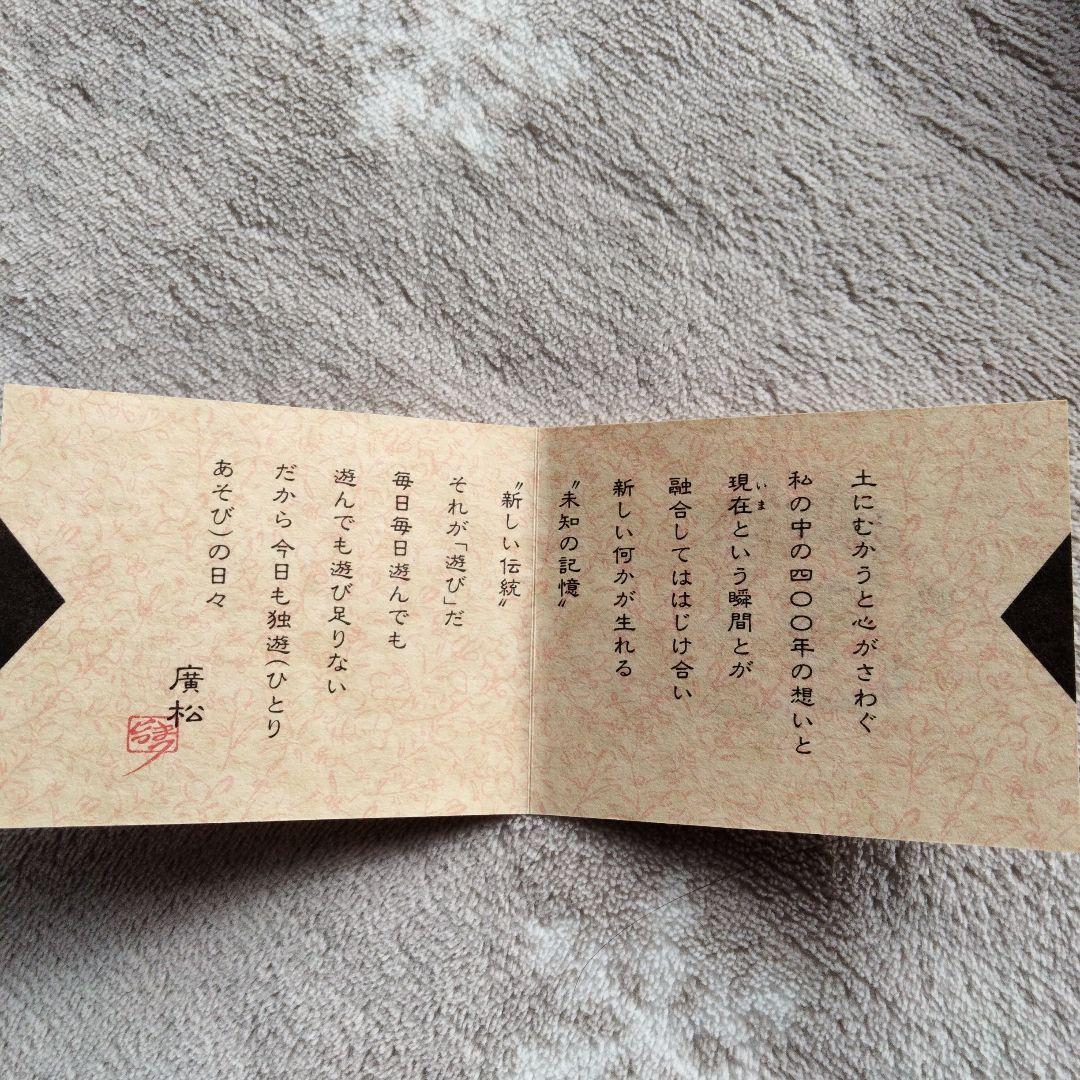 土にむかうと心がさわぐ
私の中の四〇〇年の想いと
現在という瞬間とが
いま
融合してははじけ合い
新しい何かが生れる
〝未知の記憶〟
〝新しい伝統〟
それが「遊び」だ
毎日毎日遊んでも
遊んでも遊び足りない
だから今日も独遊(ひとり
あそび)の日々
廣松